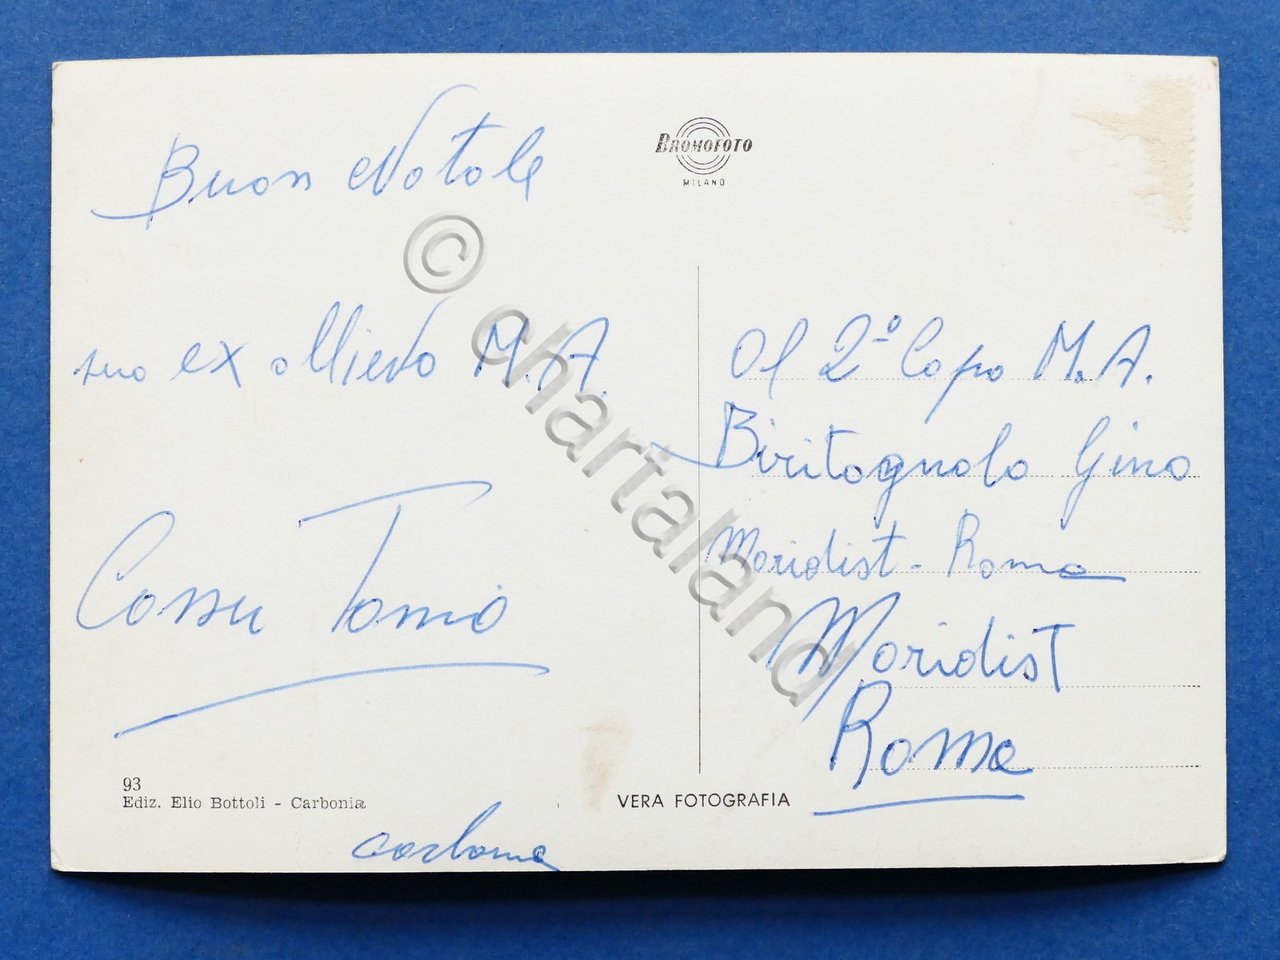 BROMOFOTO
MILANO
Buon Natale
suo ex allievo M.A.
Cossu Tomió
Al 2º Capo M.A.
Biritognolo Gino
Maridist - Roma
Maridist
Roma
93
Ediz. Elio Bottoli - Carbonia
VERA FOTOGRAFIA
carbonia
© chartaland